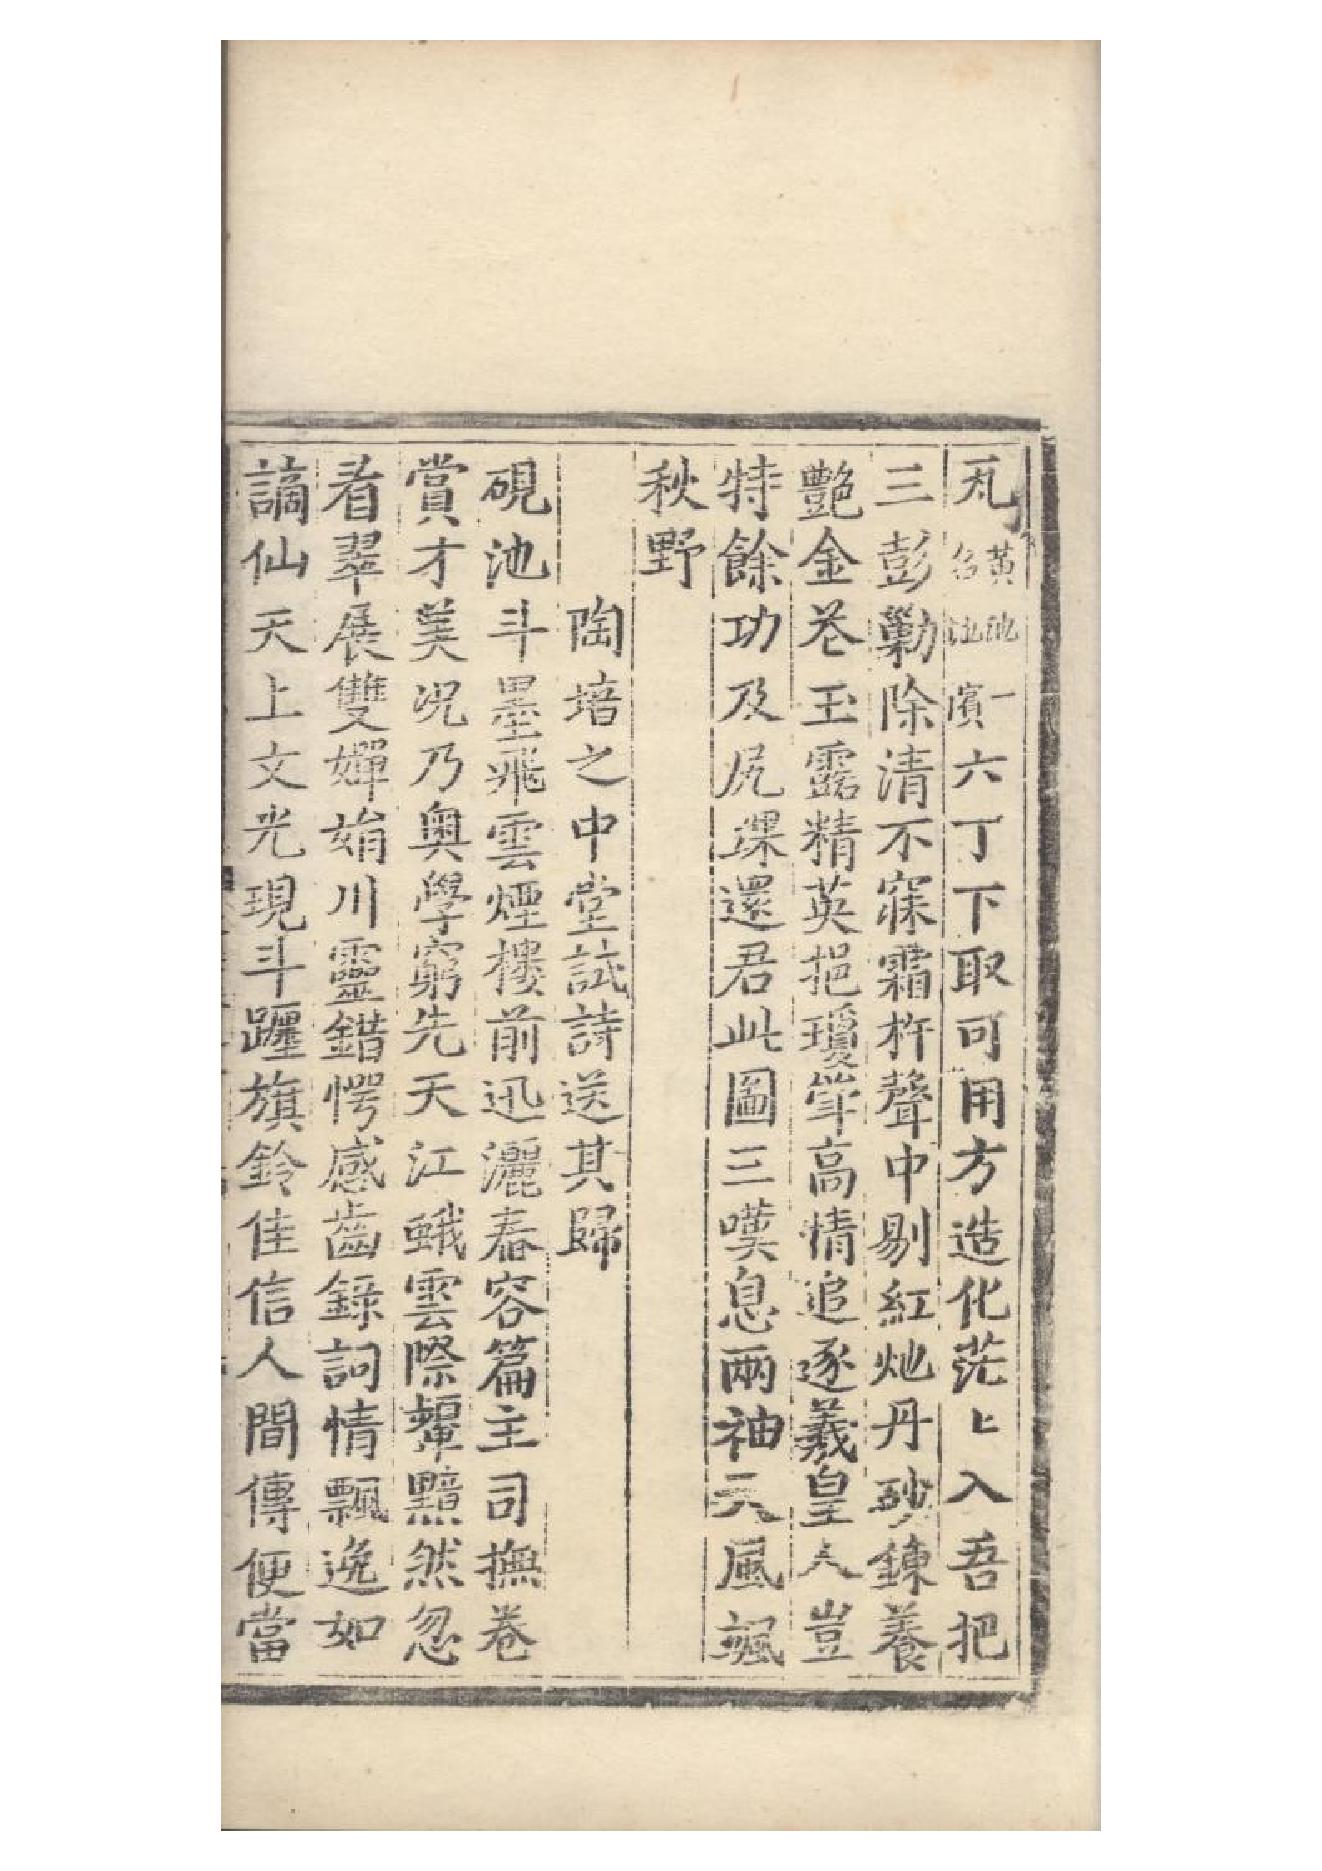 六丁下取可用方造化茫〻入吾把
三彭勦除清不寐霜杵聲中剔紅灺丹砂鍊養
艷金芲玉露精英挹瓊斝高情追逐羲皇人豈
特餘功及尻踝還君此圖三嘆息兩袖天風颯
秋野
陶培之中堂試詩送其歸
硯池斗墨飛雲煙樓前迅灑春容篇主司撫卷
賞才美况乃奧學窮先天江蛾雲際顰黯然忽
看翠展雙嬋娟川靈錯愕感齒錄詞情飄逸如
謫仙天上文光現斗躔旗鈴佳信人間傳便當